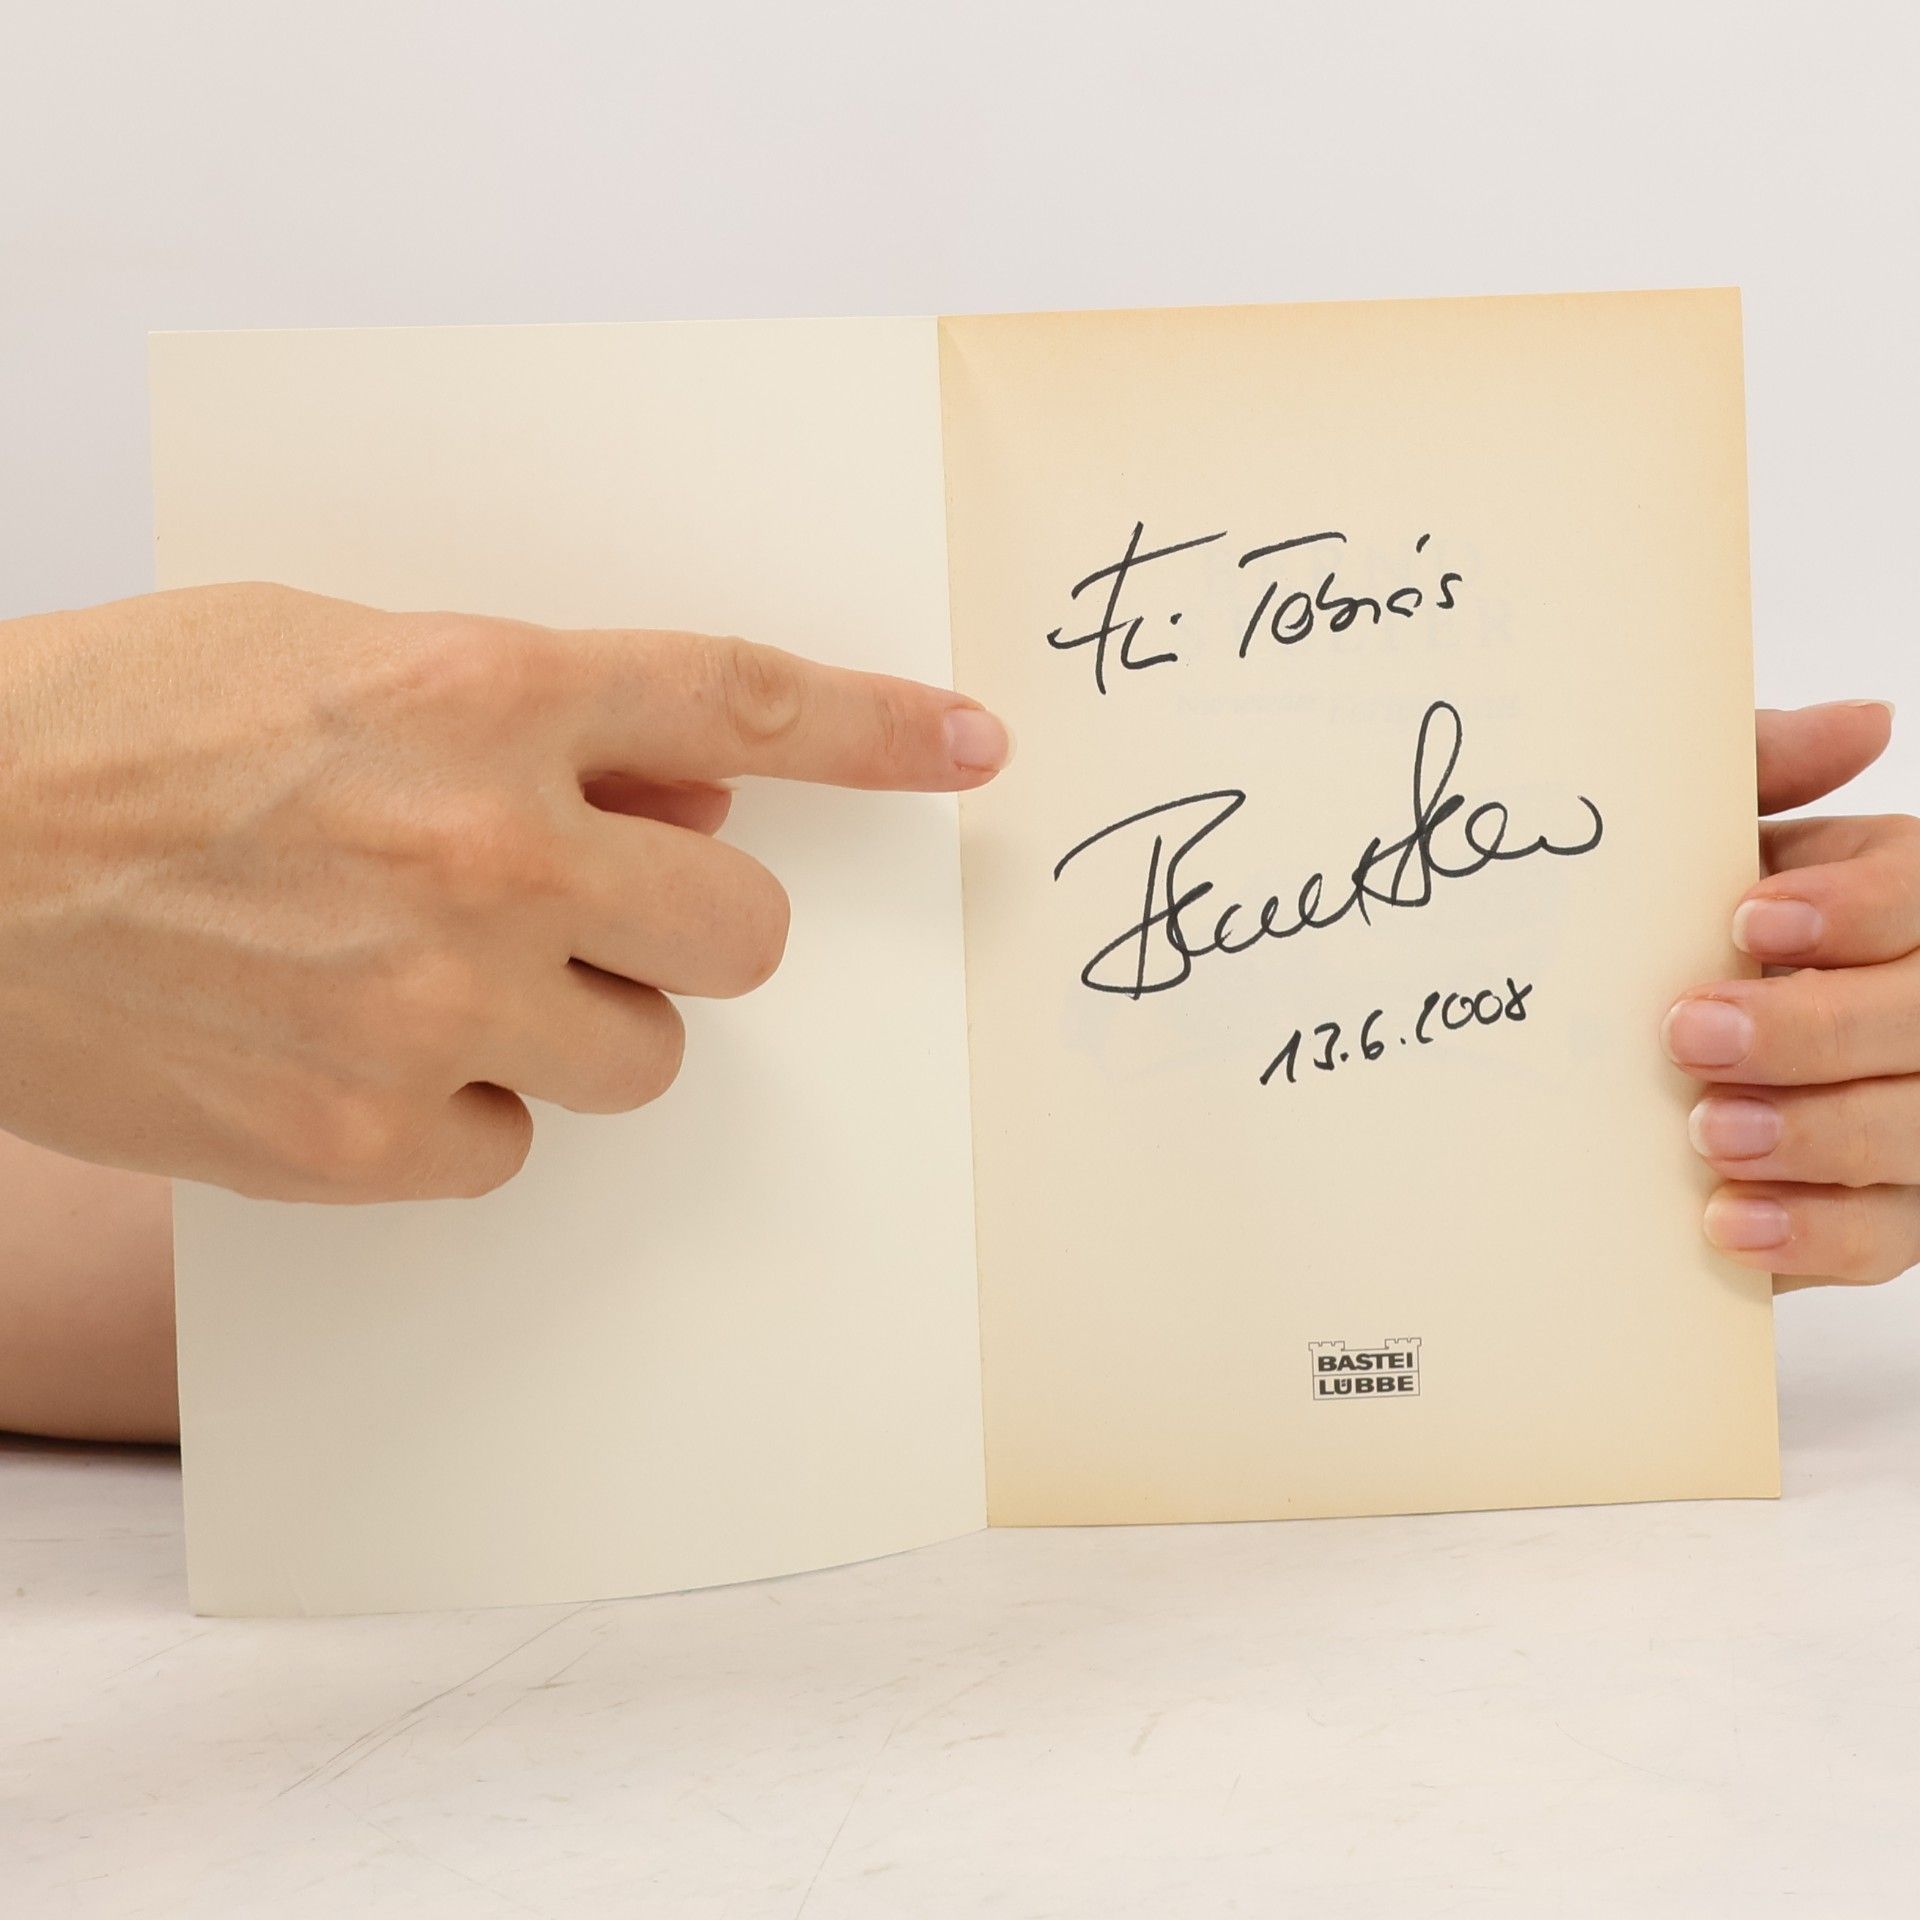 Für Tobias
13.6.2008
BASTEI
LÜBBE